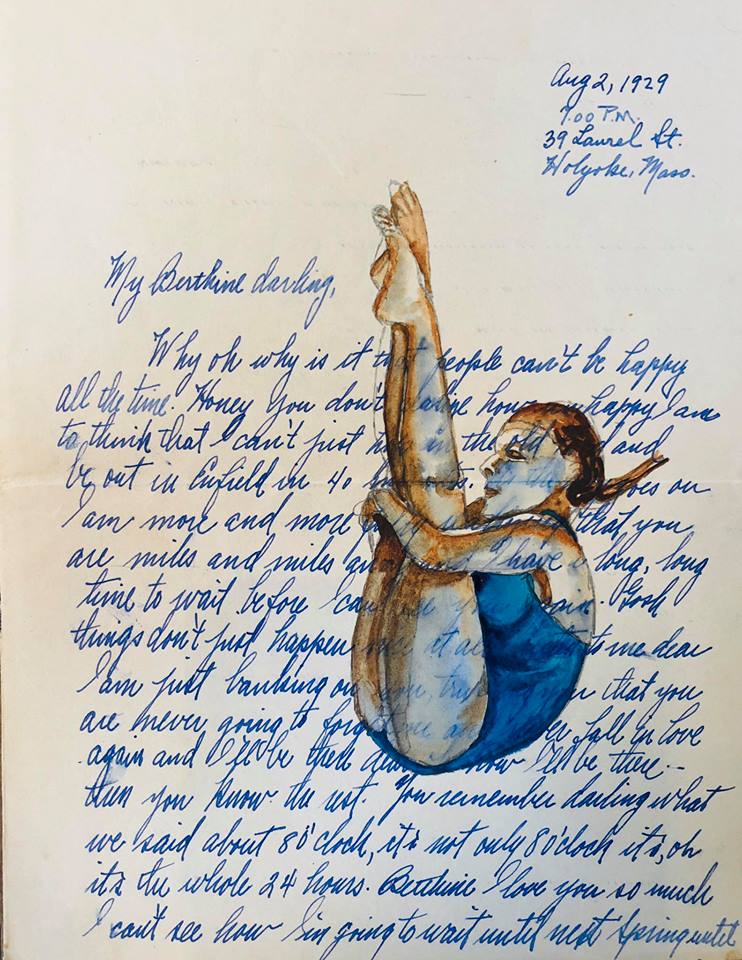 Aug 2, 1929
7.00 P.M.
39 Laurel St.
Holyoke, Mass.
My Berthine darling,
Why oh why is it that people can't be happy
all the time. Honey you don't realize how unhappy I am
to think that I can't just in the old and
be out in Enfield in 40 on
I am more and more that you
are miles and miles have a long, long
time to wait before I can see you again. Gosh
things don't just happen it to me dear
I am just banking on you, that you
are never going to forget me and fall in love
again and I'll be there know I'll be there --
then you know the rest. You remember darling what
we said about 8 o'clock, it's not only 8 o'clock it's, oh
it's the whole 24 hours. Berthine I love you so much
I can't see how I'm going to wait until next Spring until